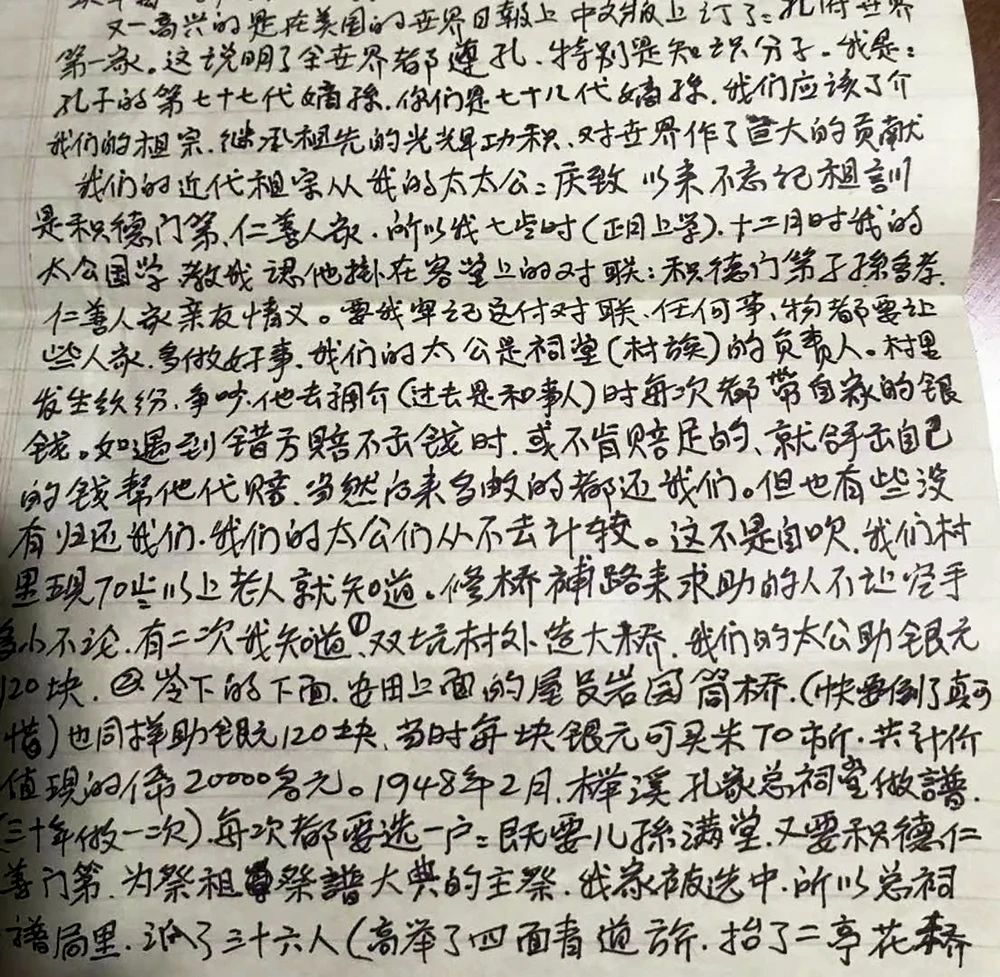 又一高兴的是在美国的世界日報上中文版上订了:孔府世界
第一家。这说明了全世界都遵孔、特别是知识分子。我是:
孔子的第七十七代嫡孫.你们是七十八代嫡孫.我们应该了介
我们的祖宗.继承祖先的光辉功积.对世界作了巨大的贡献
我们的近代祖宗从我的太太公:庆致以来不忘记祖訓
是积德门第、仁善人家.所以我七岁时(正月上学).十二月时我的
太公国学教我認他掛在客堂上的对联:积德门第子孫多孝.
仁善人家亲友情义。要我牢记这付对联、任何事、物都要让
些人家.多做好事.我们的太公是祠堂(村族)的负责人。村里
发生纠纷、争吵.他去调介(过去是和事人)时每次都带自家的银
钱。如遇到错方赔不出钱时.或不肯赔足的、就拿出自己
的钱幫他代赔.当然后来多数的都还我们。但也有些没
有归还我们.我们的太公们从不去计较。这不是自吹.我们村
里现70岁以上老人就知道。修桥補路来求助的人不让空手
多小不论.有二次我知道①双坑村外造大桥.我们的太公助银元
120块.②岺下的下面.安田上面的屋民岩园筒桥.(快要倒了真可
惜)也同样助银元120块.当时每块银元可买米70市斤.共计价
值现的币20000多元。1948年2月.榉溪孔家总祠堂做譜.
(三十年做一次).每次都要选一户:既要儿孫满堂.又要积德仁
善门第.为祭祖祭譜大典的主祭.我家被选中.所以总祠
譜局里.派了三十六人(高举了四面青道旂.抬了二亭花桥